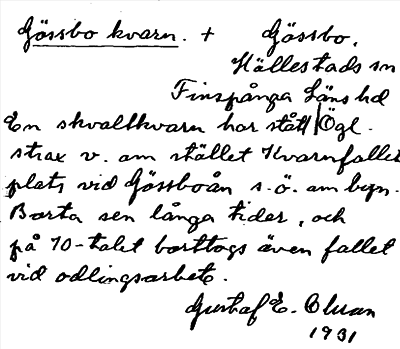 Gössbo kvarn. + Gössbo.
Hällestads sn
Finspånga Läns hd
En skvaltkvarn har stått / Ögl.
strax v. om stället Kvarnfallet
plats vid Gössboån s.ö. om byn.
Borta sen långa tider, och
på 70-talet borttogs även fallet
vid odlingsarbete.
Gustaf E. Olsson
1931